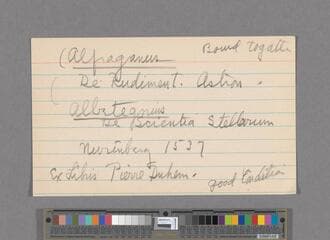 (Alfraganus Bound togethr
De Rudiment. Astron.
Albategnius
De Scientia Stellarum
Nuremberg 1537
Ex Libris Pierre Duhem.
good Condition